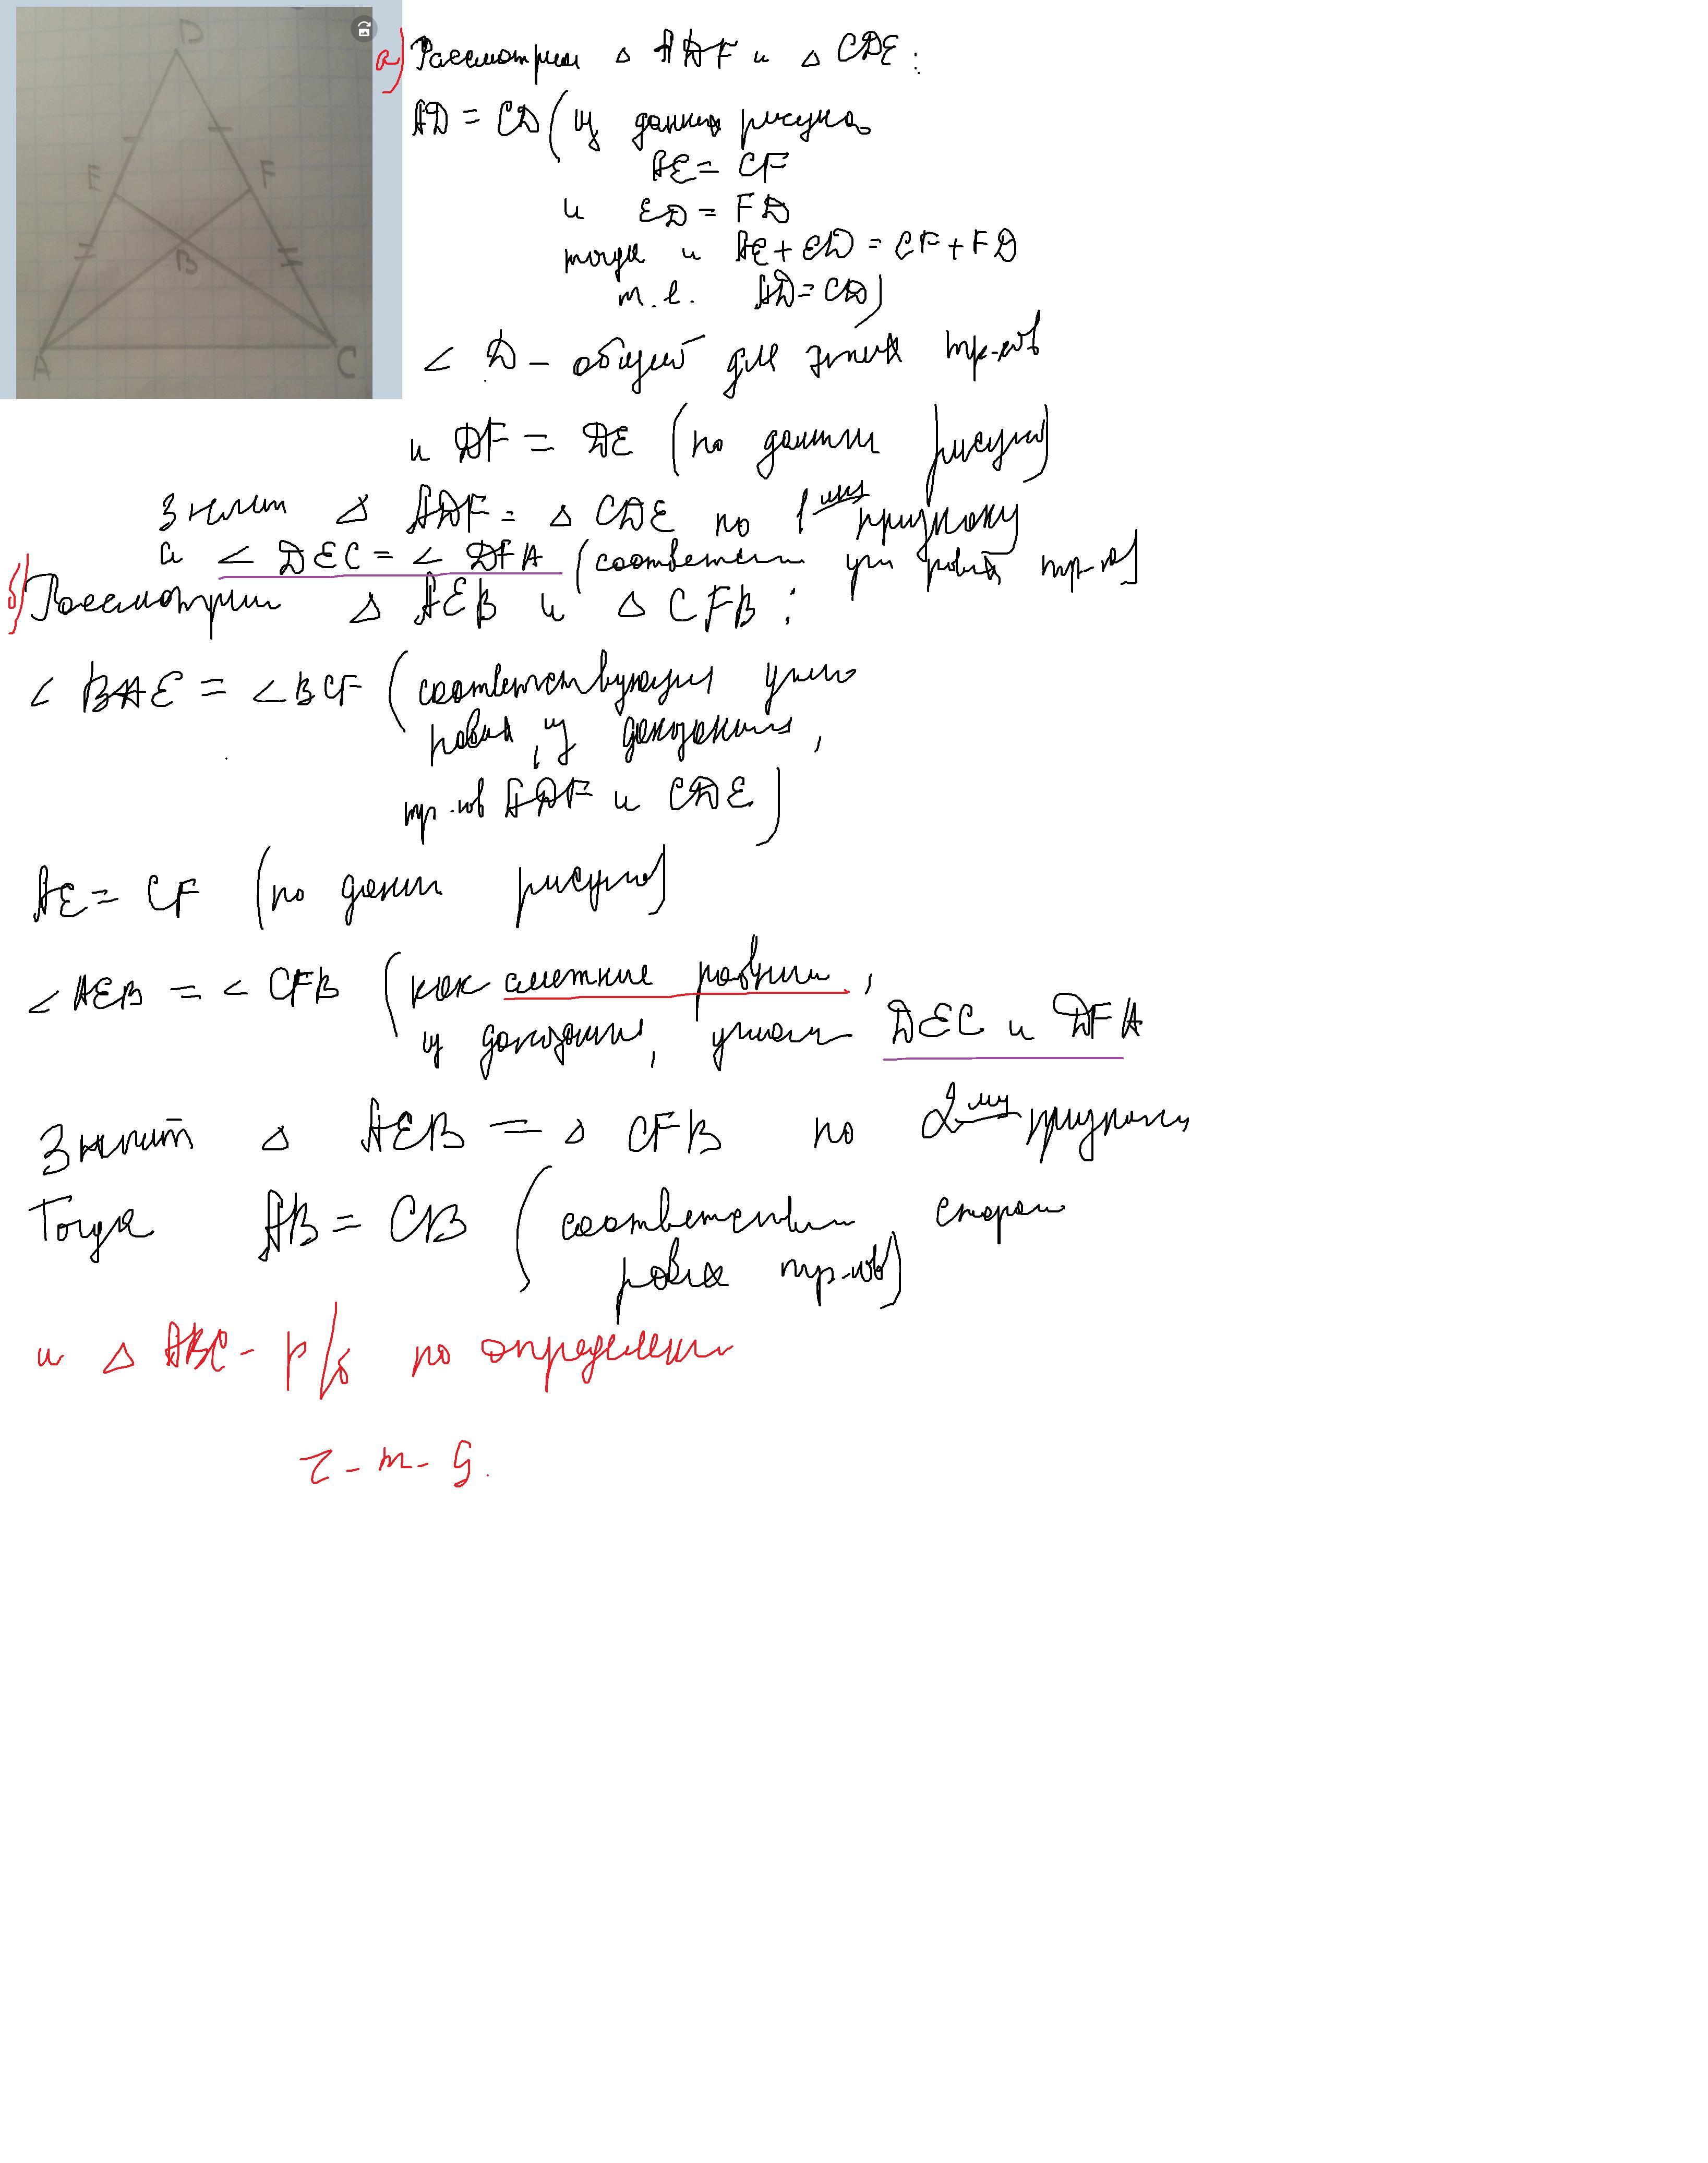 D
E
F
B
A
C
а) Рассмотрим △ ADF и △ CDE:
AD = CD (из данных рисунка
AE = CF
и ED = FD
тогда и AE + ED = CF + FD
т.е. AD = CD)
∠ D – общий для этих тр-ов
и DF = DE (по данным рисунка)
Значит △ ADF = △ CDE по 1му признаку
и ∠ DEC = ∠ DFA (соответствен угл равных тр-ов)
б) Рассмотрим △ AEB и △ CFB:
∠ BAE = ∠ BCF (соответствующие углы
равных, из доказанного,
тр-ов ADF и CDE)
AE = CF (по данн рисунка)
∠ AEB = ∠ CFB (как смежные равным,
из доказанного, углам DEC и DFA
Значит △ AEB = △ CFB по 2му признаку
Тогда AB = CB (соответствен сторон
равных тр-ов)
и △ ABC – р/б по определени
ч-т-д.